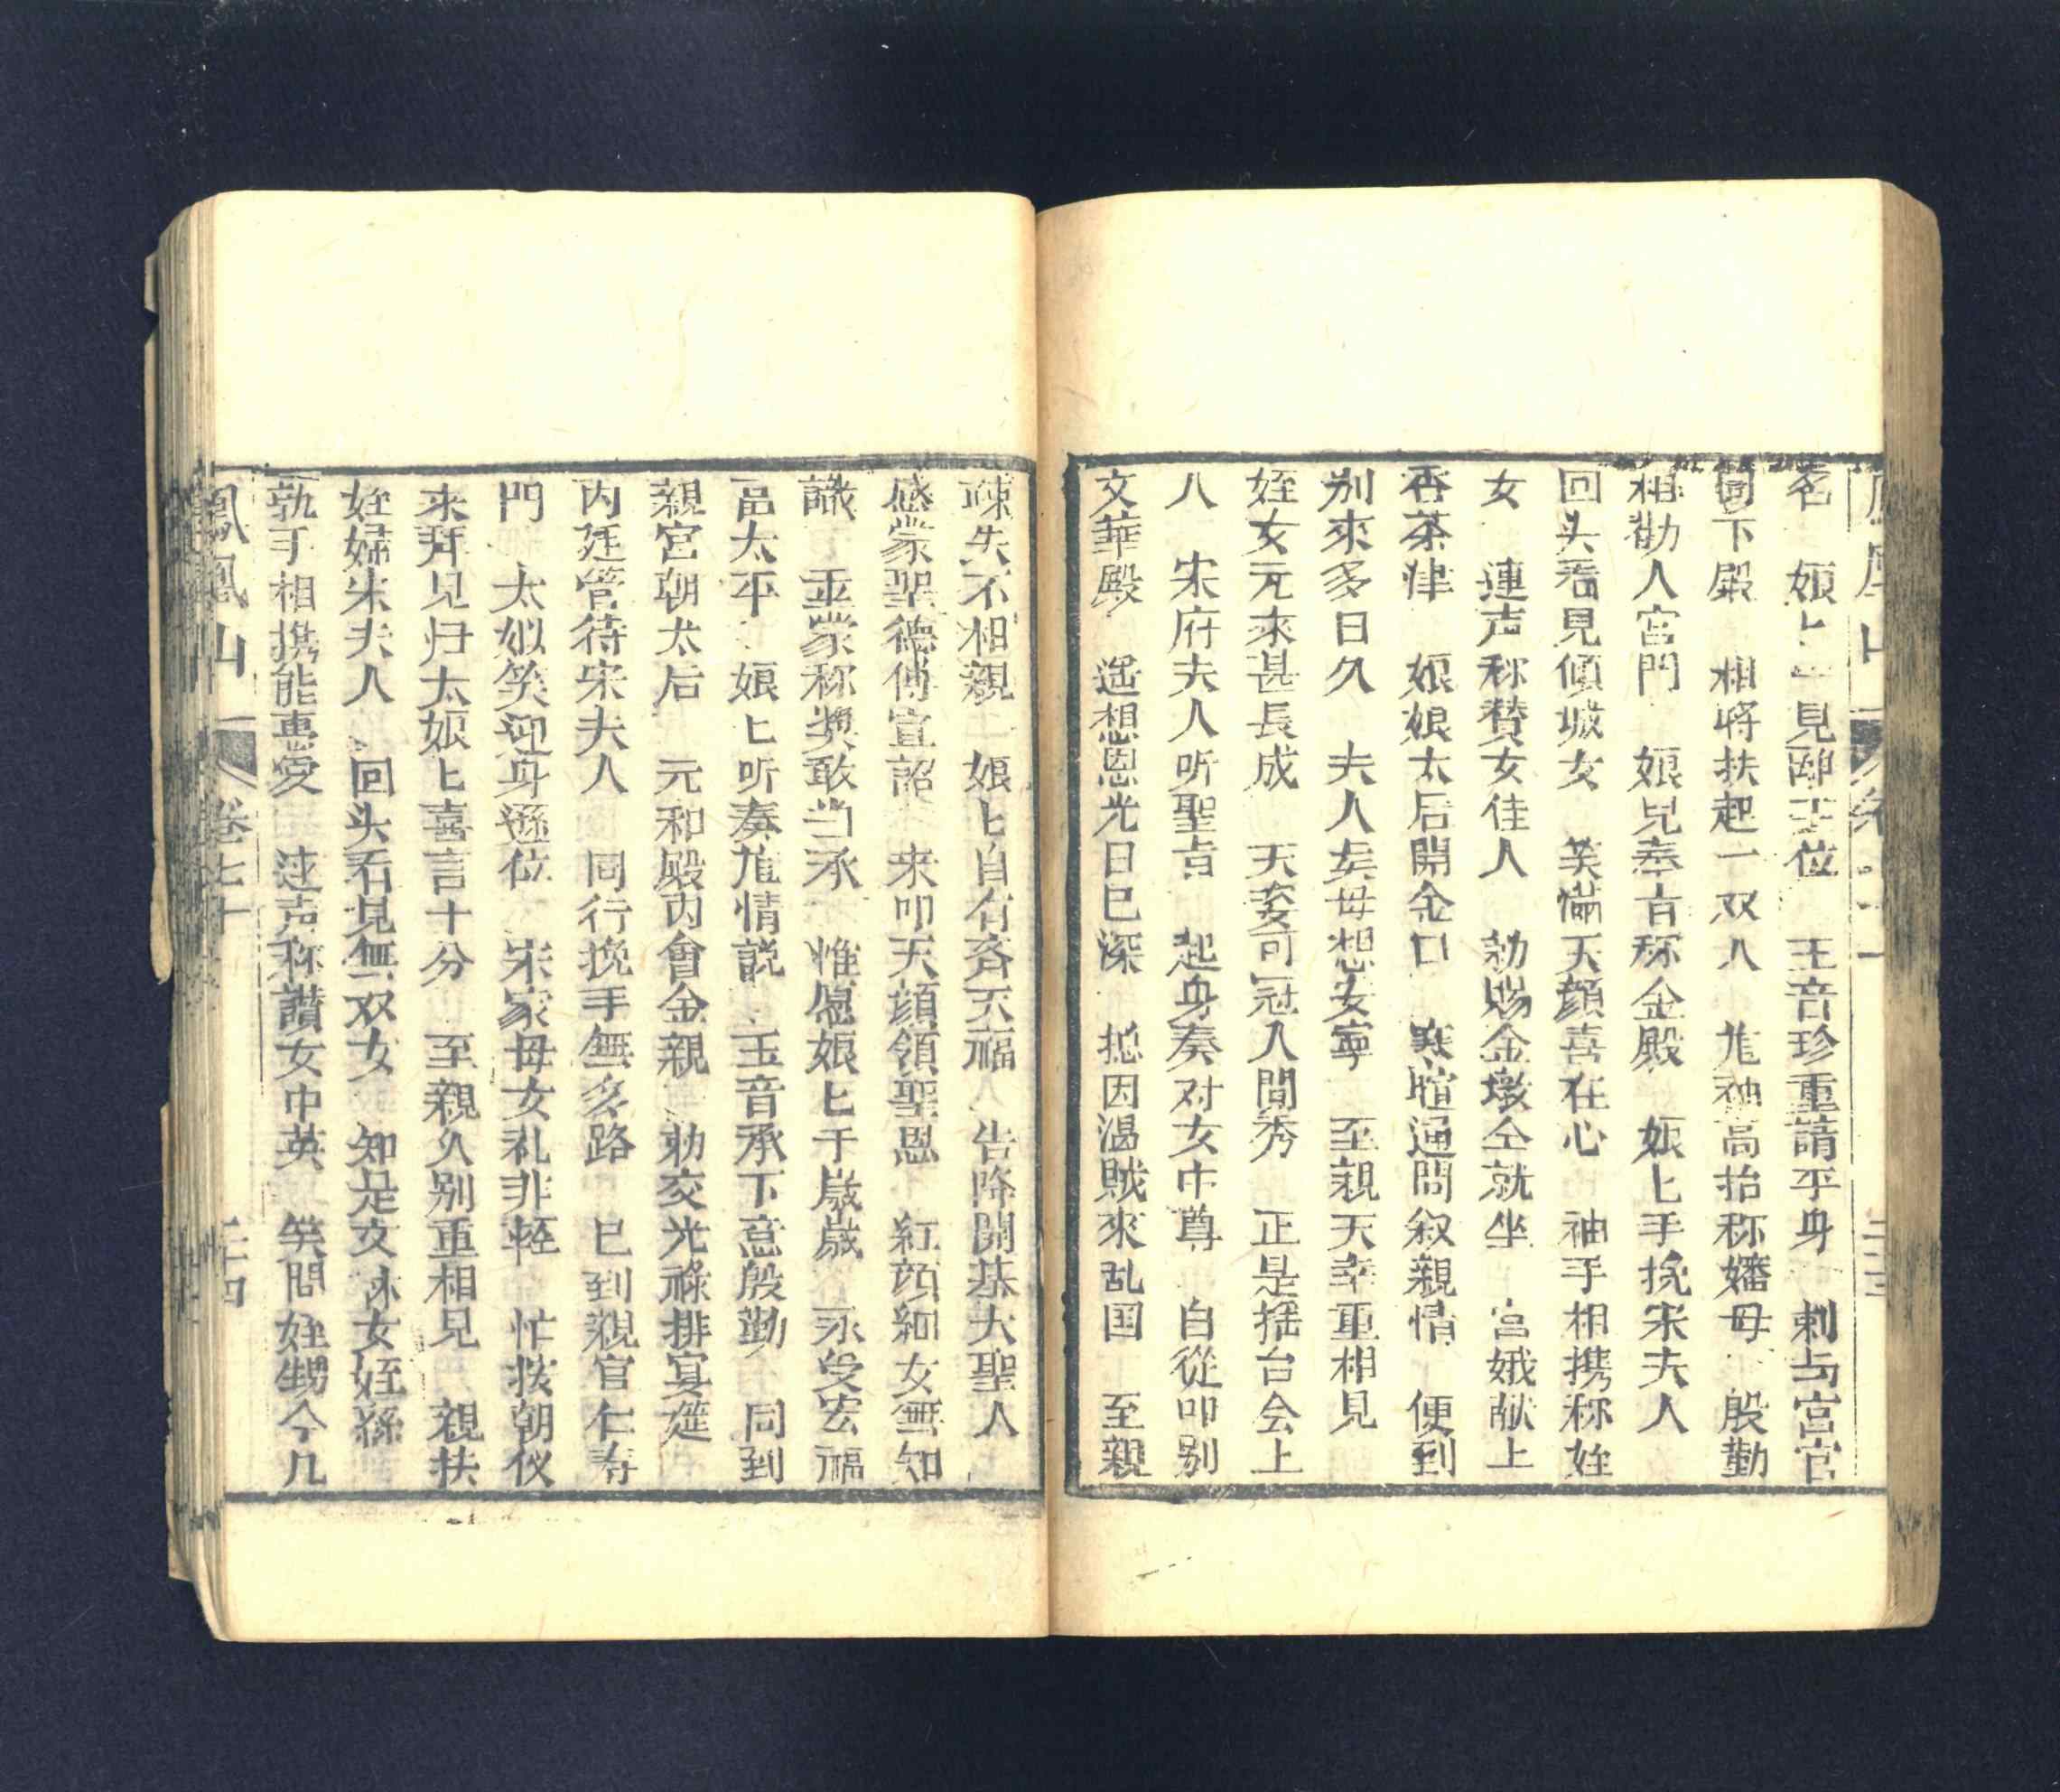 名　娘匕一見卽王位　王音珍重請平身　剌与宮官
同下殿　相將扶起一双人　尨袖高抬称嬸母　殷勤
相勸人宮門　娘兒奉旨称金殿　娘匕手挽宋夫人
回头看見傾城女　笑滿天顔喜在心　袖手相携称姪
女　連声称賛女佳人　勅賜金墩仝就坐　宮娥献上
香茶津　娘娘太后開金口　寒暄通問叙親情　便到
别來多日久　夫人矣毋想安寧　至親天幸重相見
姪女元來甚長成　天姿可冠人間秀　正是揺台会上
人　宋府夫人听聖旨　起身奏对女中尊　自從叩别
文華殿　遥想恩光日已深　捴因温賊來乱国　至親
疎失不相親　娘匕自有斉天福　告降開基大聖人
感蒙聖德傅宣詔　来叩天顔領聖恩　紅顔細女無知
識　並蒙称奬敢当承　惟愿娘匕千歳歳　永受宏福
畐太平　娘匕听奏尨情說　玉音承下意殷勤　同到
親宮朝太后　元和殿内會金親　勅交光祿排宴莚
内廷管待宋夫人　同行挽手無多路　已到親宫仁寿
門　太姒笑迎身遜位　宋家毋女礼非輕　忙扳朝仪
来拜見归太娘匕喜言十分　至親久别重相見　親扶
姪婦宋夫人　回头看見無双女　知是文休女姪孫
執手相携能惠愛　连声称讃女中英　笑問姪甥今几
鳳凰山　卷七十　二十四